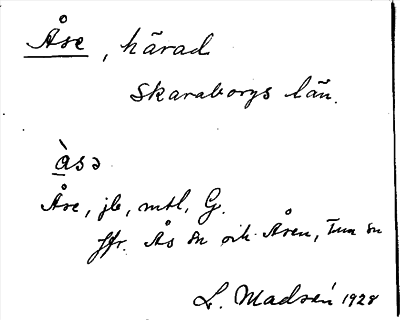 Åse, härad
Skaraborgs län.
àsə
Åse, jb, mtl, G.
Jfr. Ås sn och Åsen, Tun sn
L. Madsén 1928